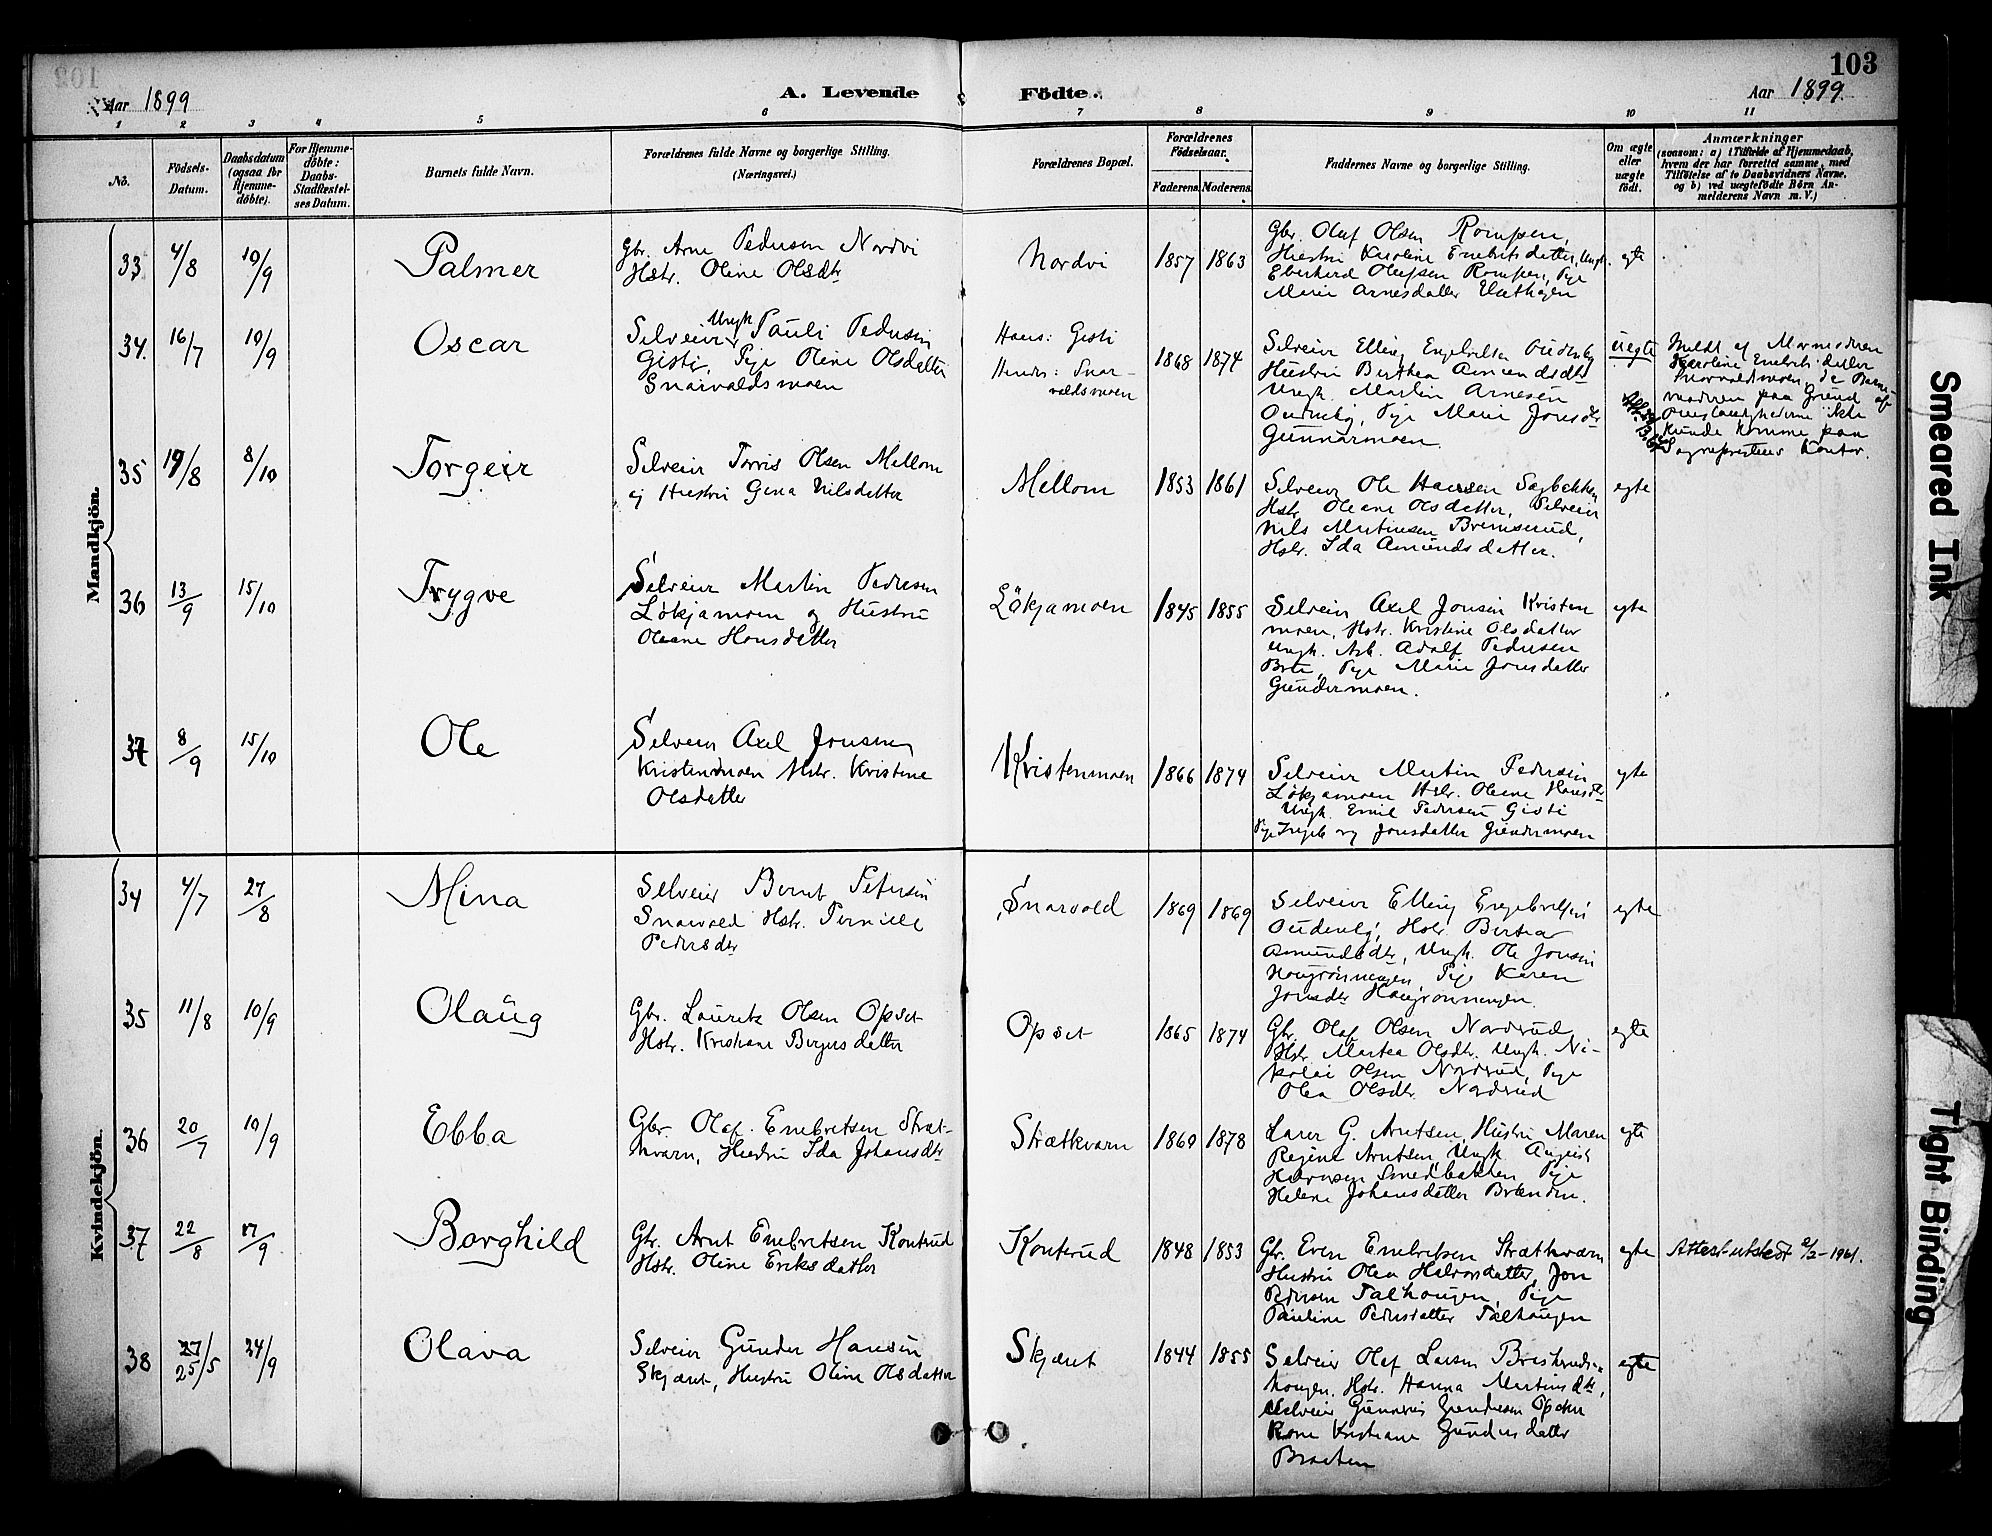 103
Aar 1899
A. Levende Födte.
Aar 1899.
1 2 3 4 5 6 7 8 9 10 11
No.
Födsels-Datum.
Daabsdatum (ogsaa for Hjemme-döbte).
For Hjemme-döbte: Daabs-Stadfæstelses Datum.
Barnets fulde Navn.
Forældrenes fulde Navne og borgerlige Stilling.
(Næringsvei.)
Forældrenes Bopæl.
Forældrenes Födselsaar.
Faderens. Moderens.
Faddernes Navne og borgerlige Stilling.
Om ægte eller uægte födt.
Anmærkninger
(saasom: a) i Tilfælde af Hjemmedaab, hvem der har forrettet samme, med Tilföielse af to Daabsvidners Navne, og b) ved uægtefödte Börn Anmelderens Navn m. V.)
Mandkjön.
33 4/8 10/9 Palmer
Gbr. Arne Pedersen Nordvi
Hstr. Oline Olsdtr
Nordvi 1857 1863
Gbr. Olaf Olsen Rompen,
Hustru Karoline Enebritsdatter, Ungk.
Eberhard Olafsen Rompen, Pige
Marie Arnesdatter
egte
34. 16/7 10/9 Oscar
Selveier Ungk Pauli Pedersen
Gisti, Pige Oline Olsdatter
Snarvoldsmoen
Hans: Gisti
Hendes: Snar-
voldsmoen
1868 1874
Selveier Elling Engebretsen Oudenby
Hustru Berthea Amundsdtr
Ungk. Martin Arnesen
Oudenby, Pige Marie Jonsdtr
Gunnarmoen.
uegte
Meldt af Mormoderen
Karoline Enebritsdatter
Snarvoldsmoen, da Barne-
moderen paa Grund af
Omstændighederne ikke
kunde komme paa
Sogneprestens Kontor.
35 19/8 8/10 Torgeir
Selveier Torris Olsen Mellom
og Hustru Gina Nilsdatter
Mellom 1853 1861
Selveier Ole Hansen Sagbakken
Hstr. Oleane Olsdatter, Selveier
Nils Martinsen Bremserud,
Hstr. Ida Amundsdatter.
egte
36 13/9 15/10 Trygve
Selveier Martin Pedersen
Lökjamoen og Hustru
Oleane Hansdatter
Lökjamoen 1845 1855
Selveier Axel Jonsen Kristen
moen, Hstr. Kristine Olsdatter
Ungk. Arb. Adolf Pedersen
Brti, Pige Marie Jonsdatter
Gundermoen.
egte
37 8/9 15/10 Ole
Selveier Axel Jonsen
Kristenmoen Hstr. Kristine
Olsdatter
Kristenmoen 1866 1874
Selveier Martin Pedersen
Lökjamoen Hstr. Oleane Hansdtr
Ungk. Emil Pedersen Gisti
Pige Ingeborg Jonsdatter Gundermoen
egte
Kvindekjön.
34 4/7 27/8 Mina
Selveier Bernt Petersen
Snarvold Hstr. Pernille
Pedersdtr
Snarvold 1869 1869
Selveier Elling Engebretsen
Oudenby, Hstr. Berthea
Amundsdtr, Ungk. Ole Jonsen
Haugrönningen, Pige Karen
Jonsdtr Haugrönningen.
egte
35 11/8 10/9 Olaug
Gbr. Lauritz Olsen Opset
Hstr. Kristiane Birgersdatter
Opset 1865 1874
Gbr. Olaf Olsen Nordrud
Hstr Martea Olsdtr. Ungk. Ni-
kolai Olsen Nordrud, Pige
Olea Olsdtr. Nordrud
egte
36 20/7 10/9 Ebba
Gbr. Olaf Enebretsen Stræt-
kvarn, Hustru Ida Johansdtr
Strætkvarn 1860 1878
Lærer G. Arntsen, Hustru Maren
Regine Arntsen Ungk August
Halvorsen Smedbakken Pige
Helene Johansdatter Brænden.
egte
37 22/8 17/9 Borghild
Gbr. Arnt Enebretsen Konterud
Hstr. Oline Eriksdatter
Konterud 1848 1853
Gbr. Even Enebretsen Strætkvarn
Hustru Olea Halvorsdatter, Jon
Pedersen Talhaugen, Pige
Pauline Pedersdatter Talhaugen
egte
Attest utstedt 2/2-1961.
38 25/5 24/9 Olava
Selveier Gunder Hansen
Skjæret, Hustru Oline Olsdatter
Skjæret 1844 1855
Selveier Olaf Larsen
haugen. Hstr. Hanna Martinsdtr,
Selveier Gunnerius Gundersen
Kone Kristiane Gundersdatter
Braaten
egte
Smeared Ink
Tight Binding